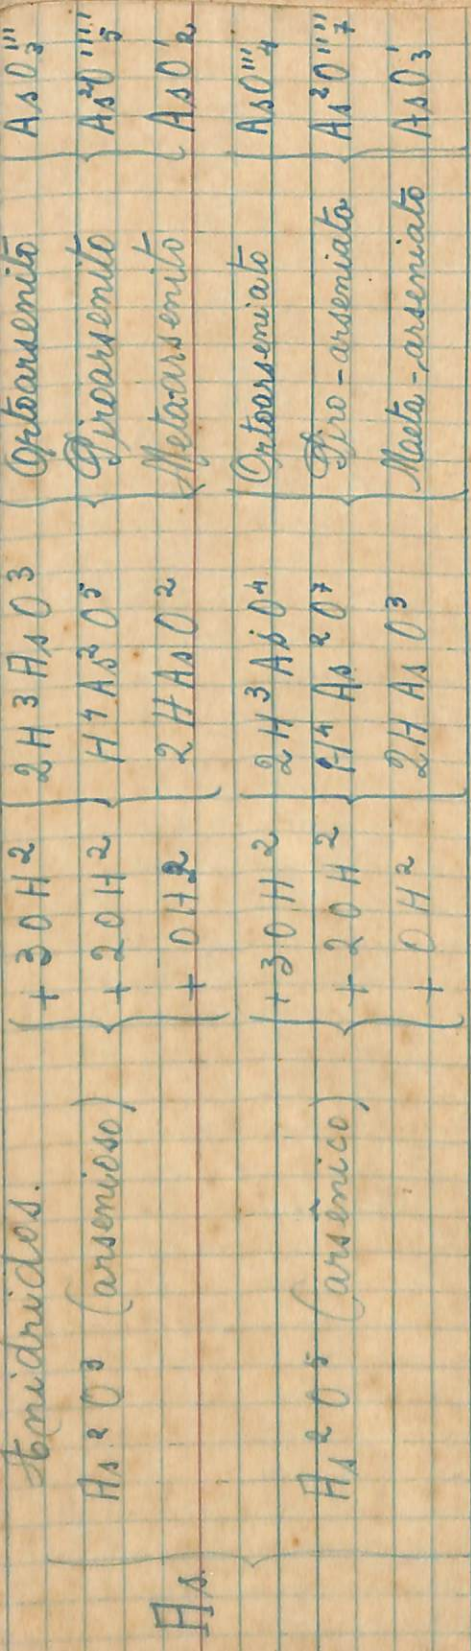 Anidridos.
As
As²O³ (arsenioso)
+ 3OH² { 2H³AsO³ { Ortoarsenito { AsO₃'''
+ 2OH² { H⁴As²O⁵ { Piroarsenito { As²O₅''''
+ OH² { 2HAsO² { Metaarsenito { AsO₂'
As²O⁵ (arsênico)
+ 3OH² { 2H³AsO⁴ { Ortoarseniato { AsO₄'''
+ 2OH² { H⁴As²O⁷ { Piro-arseniato { As²O₇''''
+ OH² { 2HAsO³ { Maeta-arseniato { AsO₃'